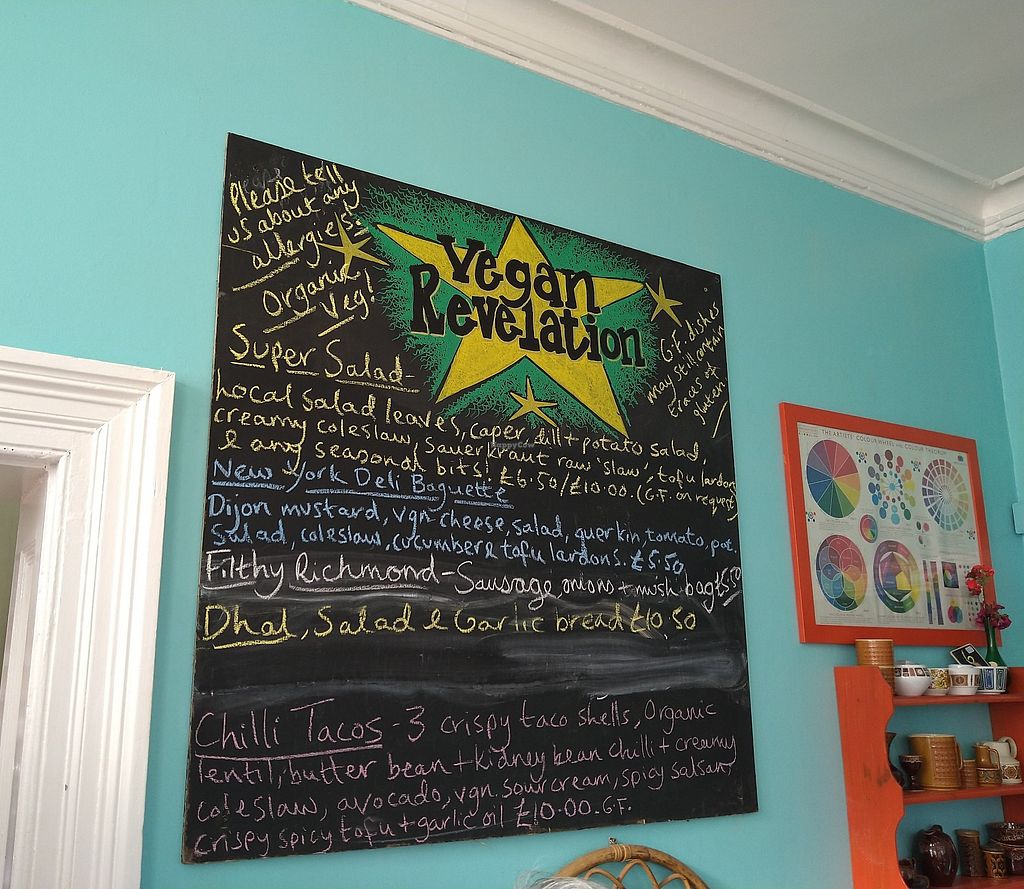 Please tell
us about any
allergies!
Organic
Veg!
Vegan
Revelation
G.F. dishes
may still contain
traces of
gluten
Super Salad-
Local salad leaves, caper, dill + potato salad
creamy coleslaw, sauerkraut raw 'slaw', tofu lardons
& any seasonal bits! £6.50/£10.00. (G.F. on request)
New York Deli Baguette
Dijon mustard, vgn cheese, salad, guerkin, tomato, pot.
Salad, coleslaw, cucumber & tofu lardons. £5.50
Filthy Richmond - Sausage, onions + mush bag £5.50
Dhal, Salad & Garlic bread £10.50
Chilli Tacos - 3 crispy taco shells, Organic
lentil, butter bean + kidney bean chilli + creamy
coleslaw, avocado, vgn. sour cream, spicy salsa,
crispy spicy tofu + garlic oil £10.00. G.F.
HappyCow
THE ARTISTS' COLOUR WHEEL AND COLOUR THEORIES